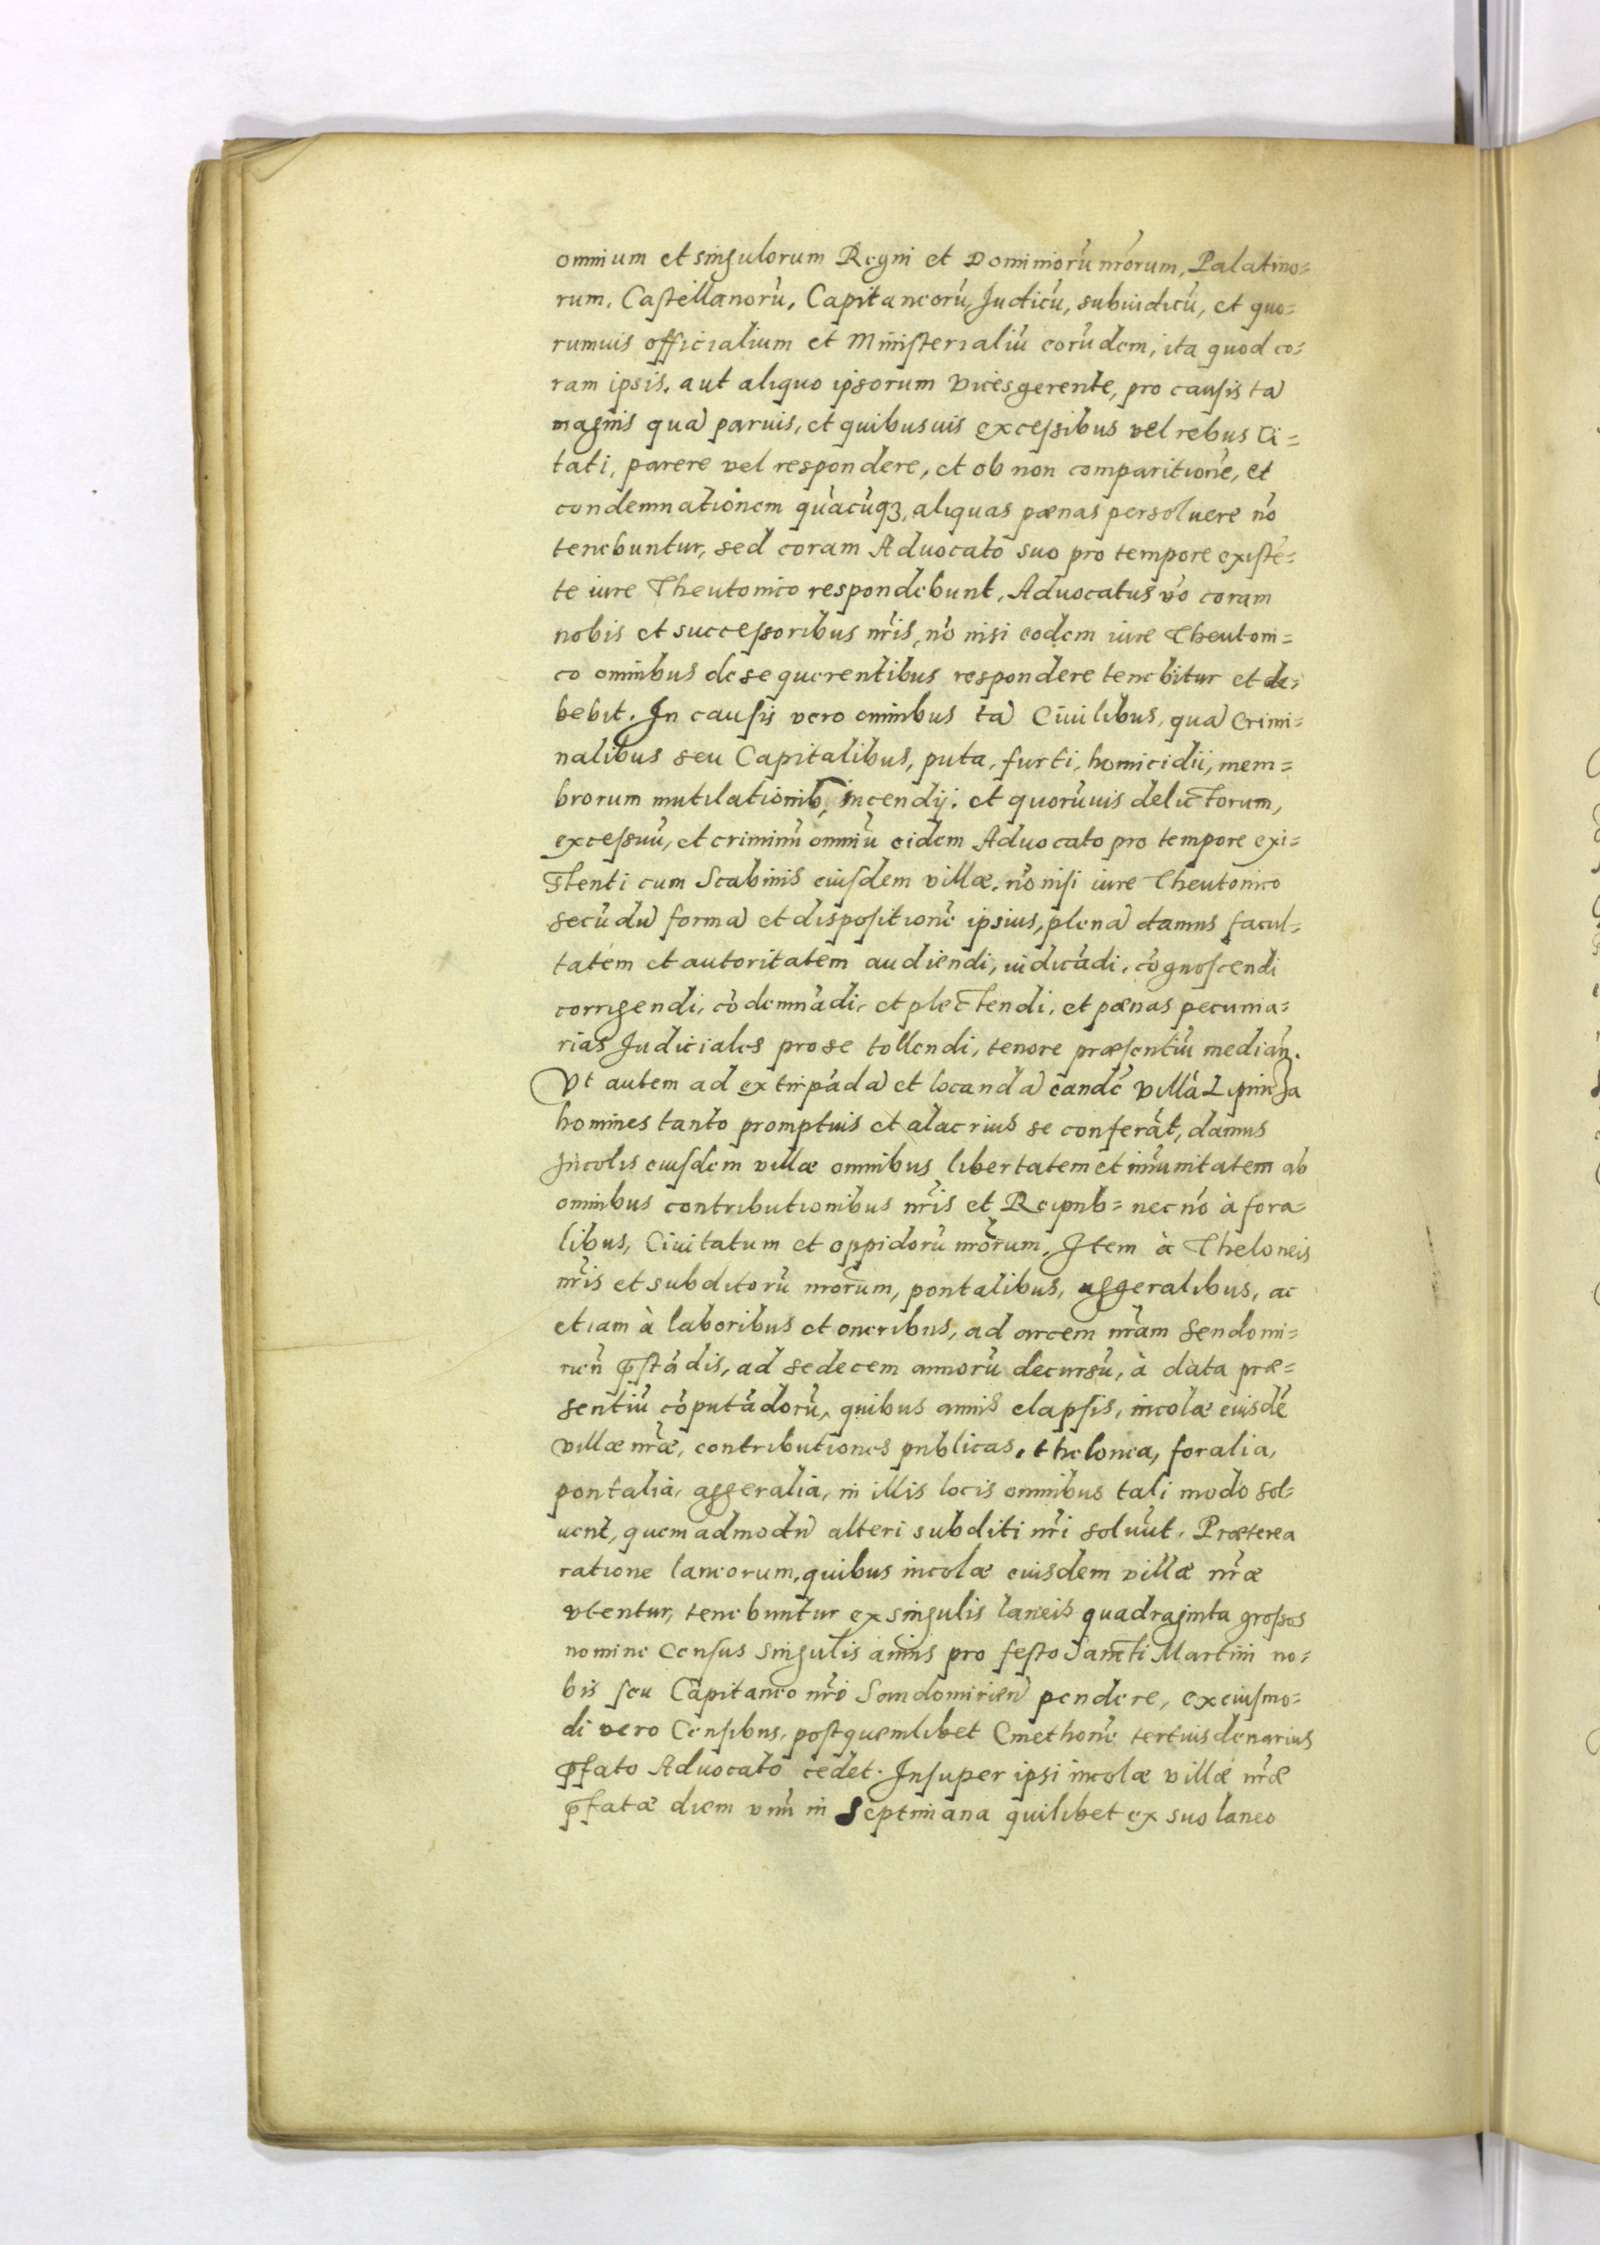 omnium et singulorum Regni et Dominiorũ nr̃orum, Palatino=
rum, Castellanorũ, Capitaneorũ, Judicũ, subiudicũ, et quo=
rumuis officialium et Ministerialiũ eorũdem, ita quod co=
ram ipsis, aut aliquo ipsorum vicesgerente, pro causis tã
magnis quã paruis, et quibusuis excessibus vel rebus Ci=
tati, parere vel respondere, et ob non comparitionẽ, et
condemnationem quãcũqꝫ, aliquas pænas persoluere nõ
tenebuntur, sed coram Aduocato suo pro tempore existẽ=
te iure Theutonico respondebunt, Aduocatus võ coram
nobis et successoribus nr̃is, nõ nisi eodem iure Theutoni=
co omnibus de se querentibus respondere tenebitur et de=
bebit. In causis vero omnibus tã Ciuilibus, quã Crimi=
nalibus seu Capitalibus, puta, furti, homicidii, mem=
brorum mutilationib, incendij, et quorũuis delictorum,
excessuũ, et criminũ omniũ eidem Aduocato pro tempore exi=
stenti cum Scabinis eiusdem villæ, nõ nisi iure Theutonico
secũdũ formã et dispositionẽ ipsius, plenã damus facul=
tatem et autoritatem audiendi, iudicãdi, cõgnoscendi
corrigendi, cõdemnãdi, et plectendi, et pænas pecunia=
rias Judiciales pro se tollendi, tenore præsentiũ median̄.
Vt autem ad extirpãdã et locandã eandẽ villã
homines tanto promptius et alacrius se conferãt, damus
Incolis eiusdem villæ omnibus libertatem et im̃unitatem ab
omnibus contributionibus nr̃is et Reipub= nec nõ à fora=
libus, Ciuitatum et oppidorũ nr̃orum, Item à Theloneis
nr̃is et subditorũ nr̃orum, pontalibus, aggeralibus, ac
etiam à laboribus et oneribus, ad arcem nr̃am Sendomi=
rien̄ p̃stãdis, ad sedecem annorũ decursũ, à data præ=
sentiũ cõputãdorũ, quibus annis elapsis, incolæ eiusdẽ
villæ nr̃æ, contributiones publicas, thelonea, foralia,
pontalia, aggeralia, in illis locis omnibus tali modo sol=
uent, quemadmodũ alteri subditi nr̃i soluũt. Præterea
ratione laneorum, quibus incolæ eiusdem villæ nr̃æ
vtentur, tenebuntur ex singulis laneis quadraginta grossos
nomine Census singulis annis pro festo Sancti Martini no=
bis seu Capitaneo nr̃o Sandomirien̄ pendere, ex eiusmo=
di vero Censibus, post quemlibet Cmethonẽ tertius denarius
p̃fato Aduocato cedet. Insuper ipsi incolæ villæ nr̃æ
p̃fatæ diem vnũ in Septimana quilibet ex suo laneo